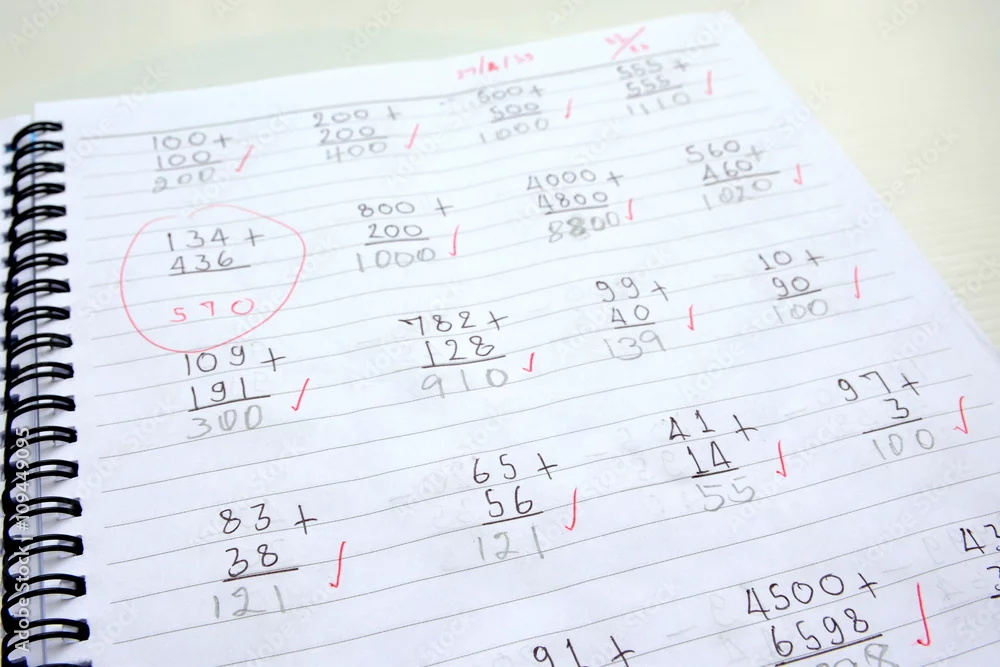 100+ 200+ 500+ 555+
100 200 500 555
200 400 1000 1110
134+ 800+ 4000+ 560+
436 200 4800 460
570 1000 8800 1020
109+ 782+ 99+ 10+
191 128 40 90
300 910 139 100
83+ 65+ 41+ 97+
38 56 14 3
121 121 55 100
91+ 4500+ 43
6598
Adobe Stock | #109449095